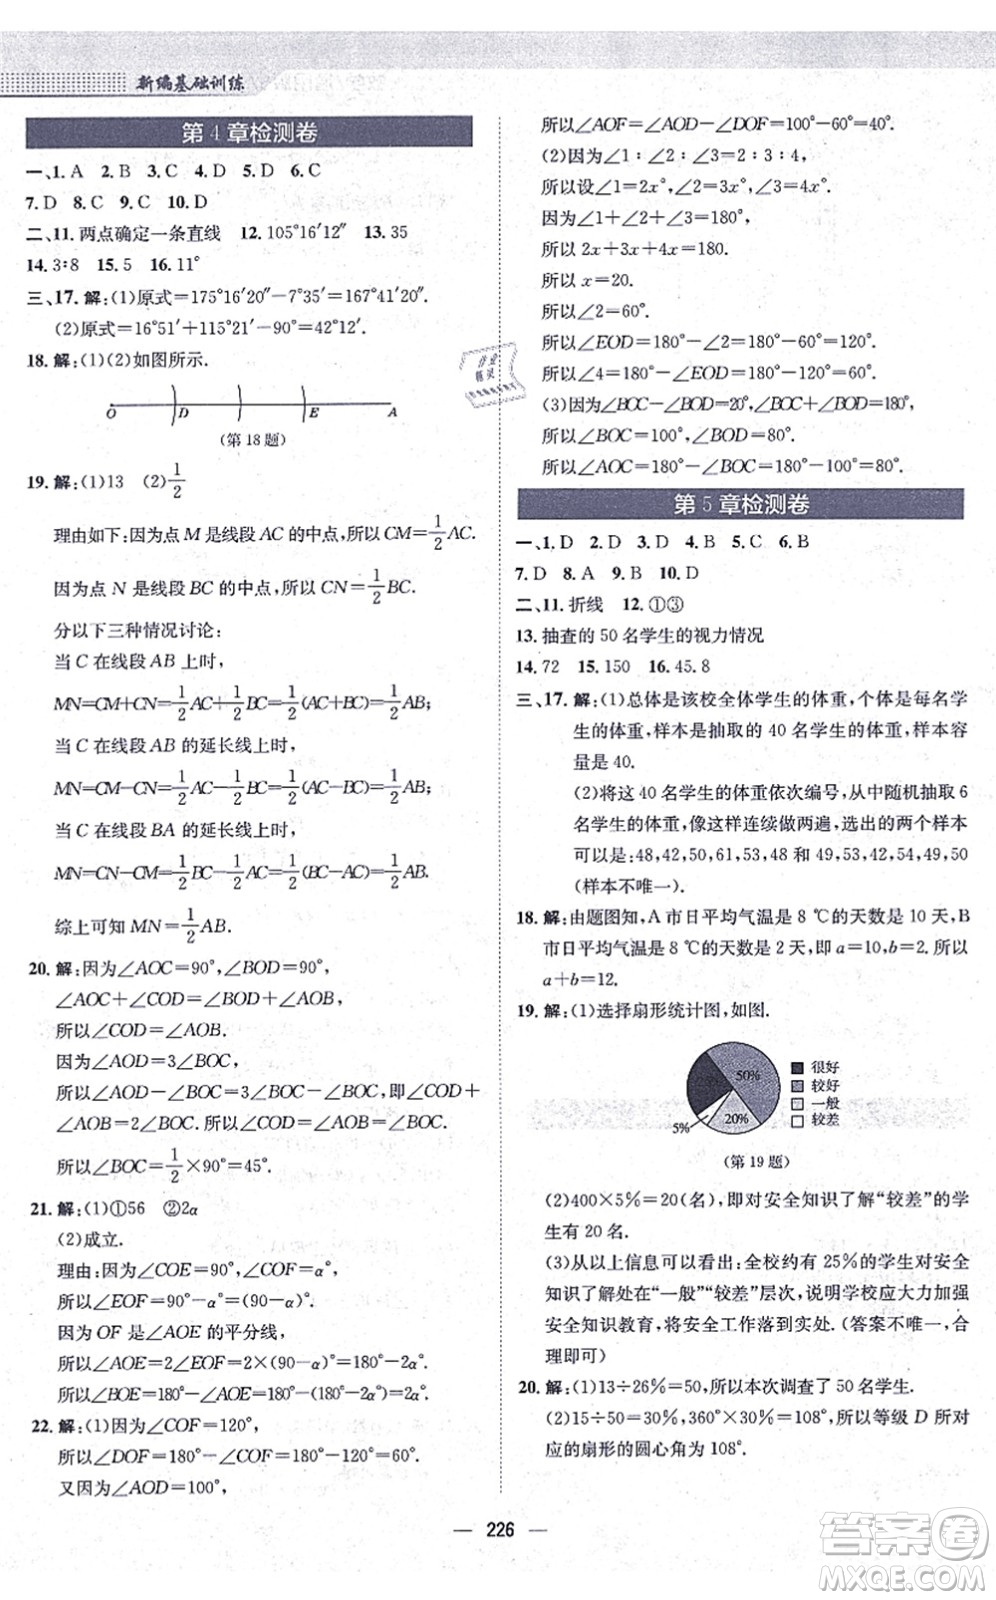 新编基础训练
第4章检测卷
一、1. A 2. B 3. C 4. D 5. D 6. C
7. D 8. C 9. C 10. D
二、11. 两点确定一条直线 12. 105°16′12″ 13. 35
14. 3∶8 15. 5 16. 11°
三、17. 解:(1)原式=175°16′20″-7°35′=167°41′20″.
(2)原式=16°51′+115°21′-90°=42°12′.
18. 解:(1)(2)如图所示.
O D E A
(第18题)
19. 解:(1)13 (2)1/2
理由如下:因为点 M 是线段 AC 的中点,所以 CM=1/2AC.
因为点 N 是线段 BC 的中点,所以 CN=1/2BC.
分以下三种情况讨论:
当 C 在线段 AB 上时,
MN=CM+CN=1/2AC+1/2BC=1/2(AC+BC)=1/2AB;
当 C 在线段 AB 的延长线上时,
MN=CM-CN=1/2AC-1/2BC=1/2(AC-BC)=1/2AB;
当 C 在线段 BA 的延长线上时,
MN=CN-CM=1/2BC-1/2AC=1/2(BC-AC)=1/2AB.
综上可知 MN=1/2AB.
20. 解:因为∠AOC=90°,∠BOD=90°,
∠AOC+∠COD=∠BOD+∠AOB,
所以∠COD=∠AOB.
因为∠AOD=3∠BOC,
所以∠AOD-∠BOC=3∠BOC-∠BOC,即∠COD+
∠AOB=2∠BOC,所以∠COD=∠AOB=∠BOC.
所以∠BOC=1/2×90°=45°.
21. 解:(1)①56 ②2α
(2)成立.
理由:因为∠COE=90°,∠COF=α°,
所以∠EOF=90°-α°=(90-α)°.
因为 OF 是∠AOE 的平分线,
所以∠AOE=2∠EOF=2×(90-α)°=180°-2α°.
所以∠BOE=180°-∠AOE=180°-(180°-2α°)=2α°.
22. 解:(1)因为∠COF=120°,
所以∠DOF=180°-∠COF=180°-120°=60°.
又因为∠AOD=100°,
所以∠AOF=∠AOD-∠DOF=100°-60°=40°.
(2)因为∠1∶∠2∶∠3=2∶3∶4,
所以设∠1=2x°,∠2=3x°,∠3=4x°.
因为∠1+∠2+∠3=180°,
所以 2x+3x+4x=180.
所以 x=20.
所以∠2=60°.
所以∠EOD=180°-∠2=180°-60°=120°.
所以∠4=180°-∠EOD=180°-120°=60°.
(3)因为∠BOC-∠BOD=20°,∠BOC+∠BOD=180°,
所以∠BOC=100°,∠BOD=80°.
所以∠AOC=180°-∠BOC=180°-100°=80°.
第5章检测卷
一、1. D 2. D 3. D 4. B 5. C 6. B
7. D 8. A 9. B 10. D
二、11. 折线 12. ①③
13. 抽查的 50 名学生的视力情况
14. 72 15. 150 16. 45.8
三、17. 解:(1)总体是该校全体学生的体重,个体是每名学
生的体重,样本是抽取的 40 名学生的体重,样本
容量是 40.
(2)将这 40 名学生的体重依次编号,从中随机抽取 6
名学生的体重,像这样连续做两遍,选出的两个样本
可以是:48,42,50,61,53,48 和 49,54,42,52,49,50
(样本不唯一).
18. 解:由题图知,A 市日平均气温是 8 ℃的天数是 10 天,B
市日平均气温是 8 ℃的天数是 2 天,即 a=10,b=2. 所以
a+b=12.
19. 解:(1)选择扇形统计图,如图.
50%
20%
5%
很好
较好
一般
较差
(第19题)
(2)400×5%=20(名),即对安全知识了解“较差”的学
生有 20 名.
(3)从以上信息可以看出:全校约有 25%的学生对安
全知识了解处在“一般”“较差”层次,说明学校应大力加强
安全知识教育,将安全工作落到实处.(答案不唯一,合
理即可)
20. 解:(1)13÷26%=50,所以本次调查了 50 名学生.
(2)15÷50=30%,360°×30%=108°,所以等级 D 所对
应的扇形的圆心角为 108°.
226
答案圈
MXQE.COM